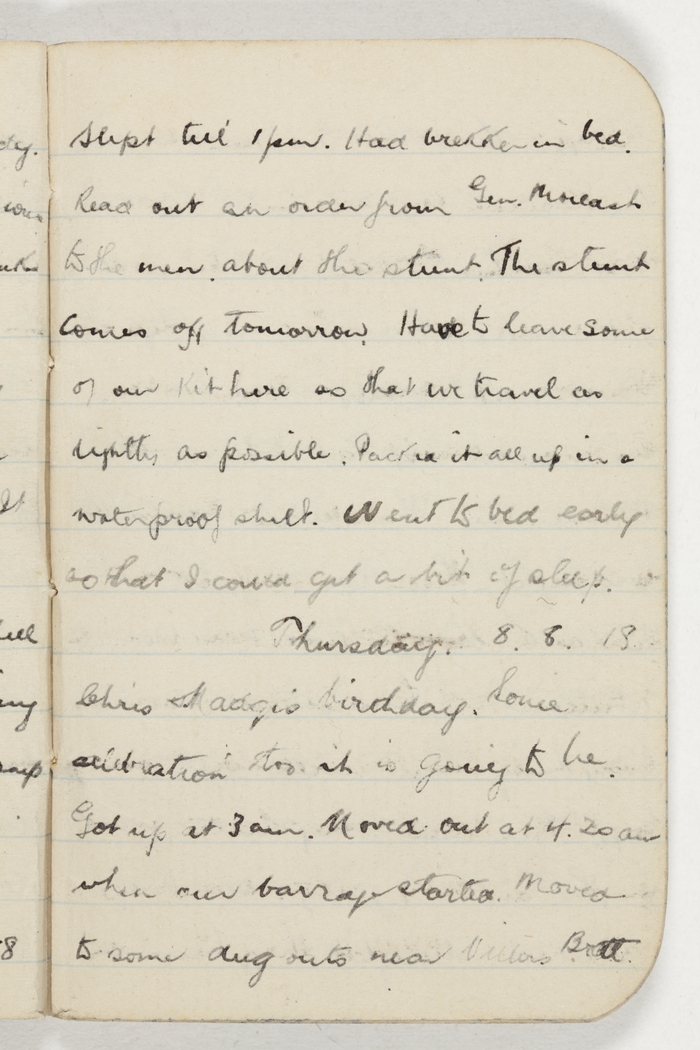 Slept till 1 pm. Had brekker in bed.
Read out an order from Gen. Moreash
to the men about the stunt. The stunt
comes off tomorrow. Have to leave some
of our kit here so that we travel as
lightly as possible. Packed it all up in a
waterproof shelt. Went to bed early
so that I could get a bit of sleep.
Thursday. 8. 8. 18
Chris & Madge's birthday. Some
celebration too it is going to be.
Got up at 3 am. Moved out at 4.20 am
when our barrage started. Moved
to some dug outs near Villers Brett.